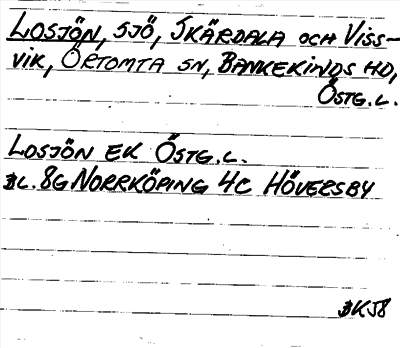 LOSJÖN, SJÖ, SKÄRDALA OCH VISS-
VIK, ÖRTOMTA SN, BANKEKINDS HD,
ÖSTG.L.
LOSJÖN EK ÖSTG.L.
BL. 8G NORRKÖPING 4C HÖVERSBY
BKJ8